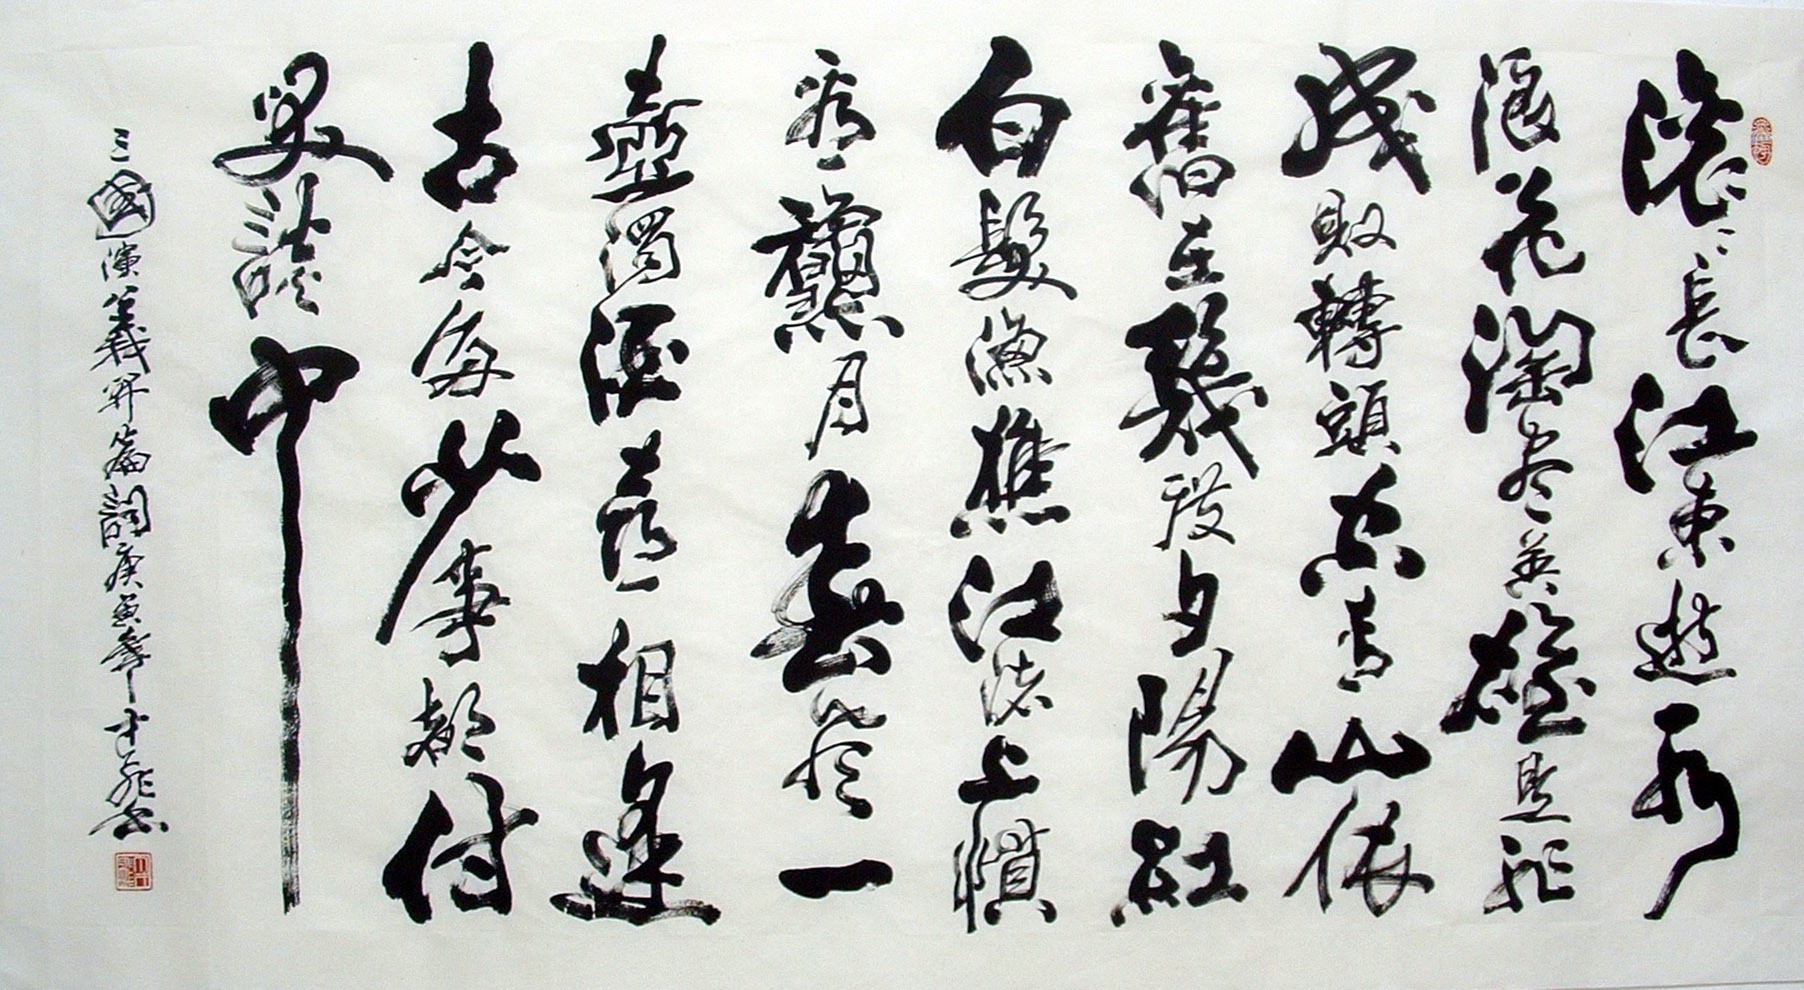 滚〻長江東逝水
浪花淘尽英雄是非
成敗轉頭空青山依
舊在幾度夕陽紅
白髮漁樵江渚上慣
看秋月春風一
壺濁酒喜相逢
古今多少事都付
笑談中
三國演義開篇詞庚寅年